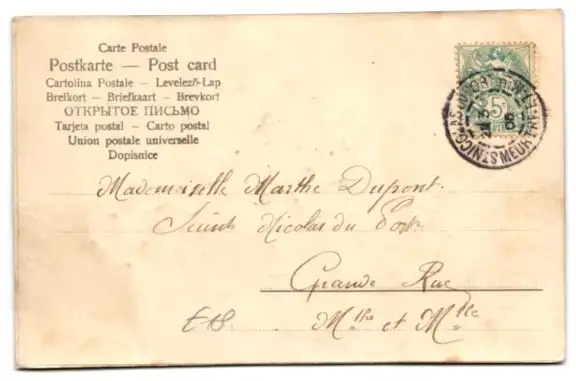 Carte Postale
Postkarte — Post card
Cartolina Postale – Levelező-Lap
Brefkort – Briefkaart – Brevkort
ОТКРЫТОЕ ПИСЬМО
Tarjeta postal – Carto postal
Union postale universelle
Dopisnice
5c
Mademoiselle Marthe Dupont.
Saint Nicolas du Port
Grande Rue
Mthe et Mlle